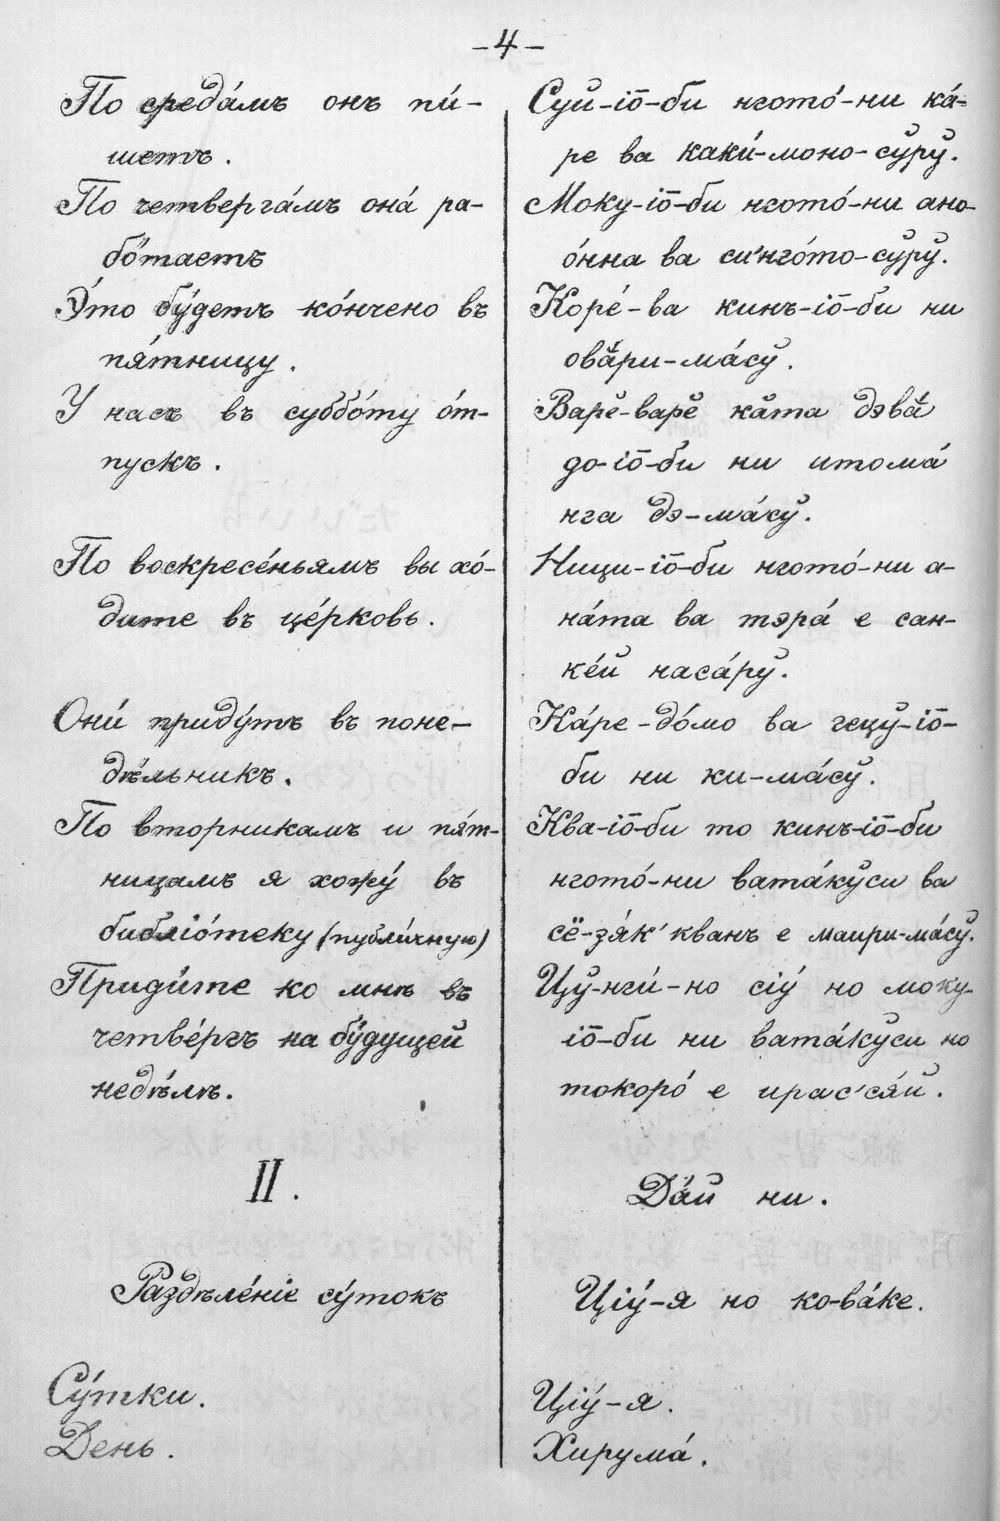 –4–
По среда́мъ онъ пи́-
шетъ.
По четверга́мъ она́ ра-
бо́таетъ
Э́то бу́детъ ко́нчено въ
пя́тницу.
У насъ въ суббо́ту о́т-
пускъ.
По воскресе́ньямъ вы хо́-
дите въ це́рковь.
Они́ приду́тъ въ поне-
дѣ́льникъ.
По вторникамъ и пя́т-
ницамъ я хожу́ въ
библіо́теку (публи́чную)
Приди́те ко мнѣ въ
четве́ргъ на бу́дущей
недѣ́лѣ.
II.
Раздѣле́ніе су́токъ
Су́тки.
День.
Суй-іо̄-би нгото́-ни ка́-
ре ва каки́-моно-сӯрӯ.
Моку-іо̄-би нгото́-ни ано-
о́нна ва си'нго́то-сӯрӯ.
Коре́-ва кинъ-іо̄-би ни
овӑри-ма́сӯ.
Варĕ-варĕ кӑта дэвӑ
до-іо̄-би ни итома́
нга дэ-ма́сӯ.
Ници-іо̄-би нгото́-ни а-
на́та ва тэра́ е сан-
ке́й наса́рӯ.
Ка́ре-до́мо ва гецӯ-іо̄-
би ни ки-ма́сӯ.
Ква-іо̄-би то кинъ-іо̄-би
нгото́-ни вата́кӯси ва
сё-зя́к' кванъ е маири-ма́сӯ.
Цӯ-нги́-но сіу́ но моку-
іо̄-би ни вата́кӯси но
токоро́ е ирас'ся́й.
Да́й ни.
Ціу́-я но ко-ва́ке.
Ціу́-я.
Хирума́.